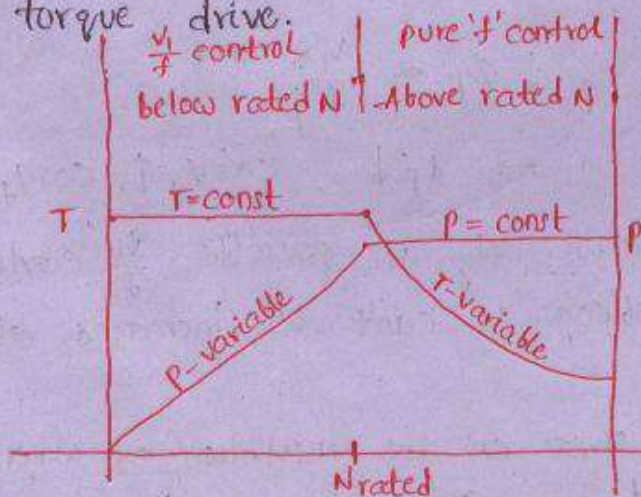 torque drive.
V1/f control
pure 'f' control
below rated N
Above rated N
T
T=const
P = const
P
P-variable
T-variable
Nrated